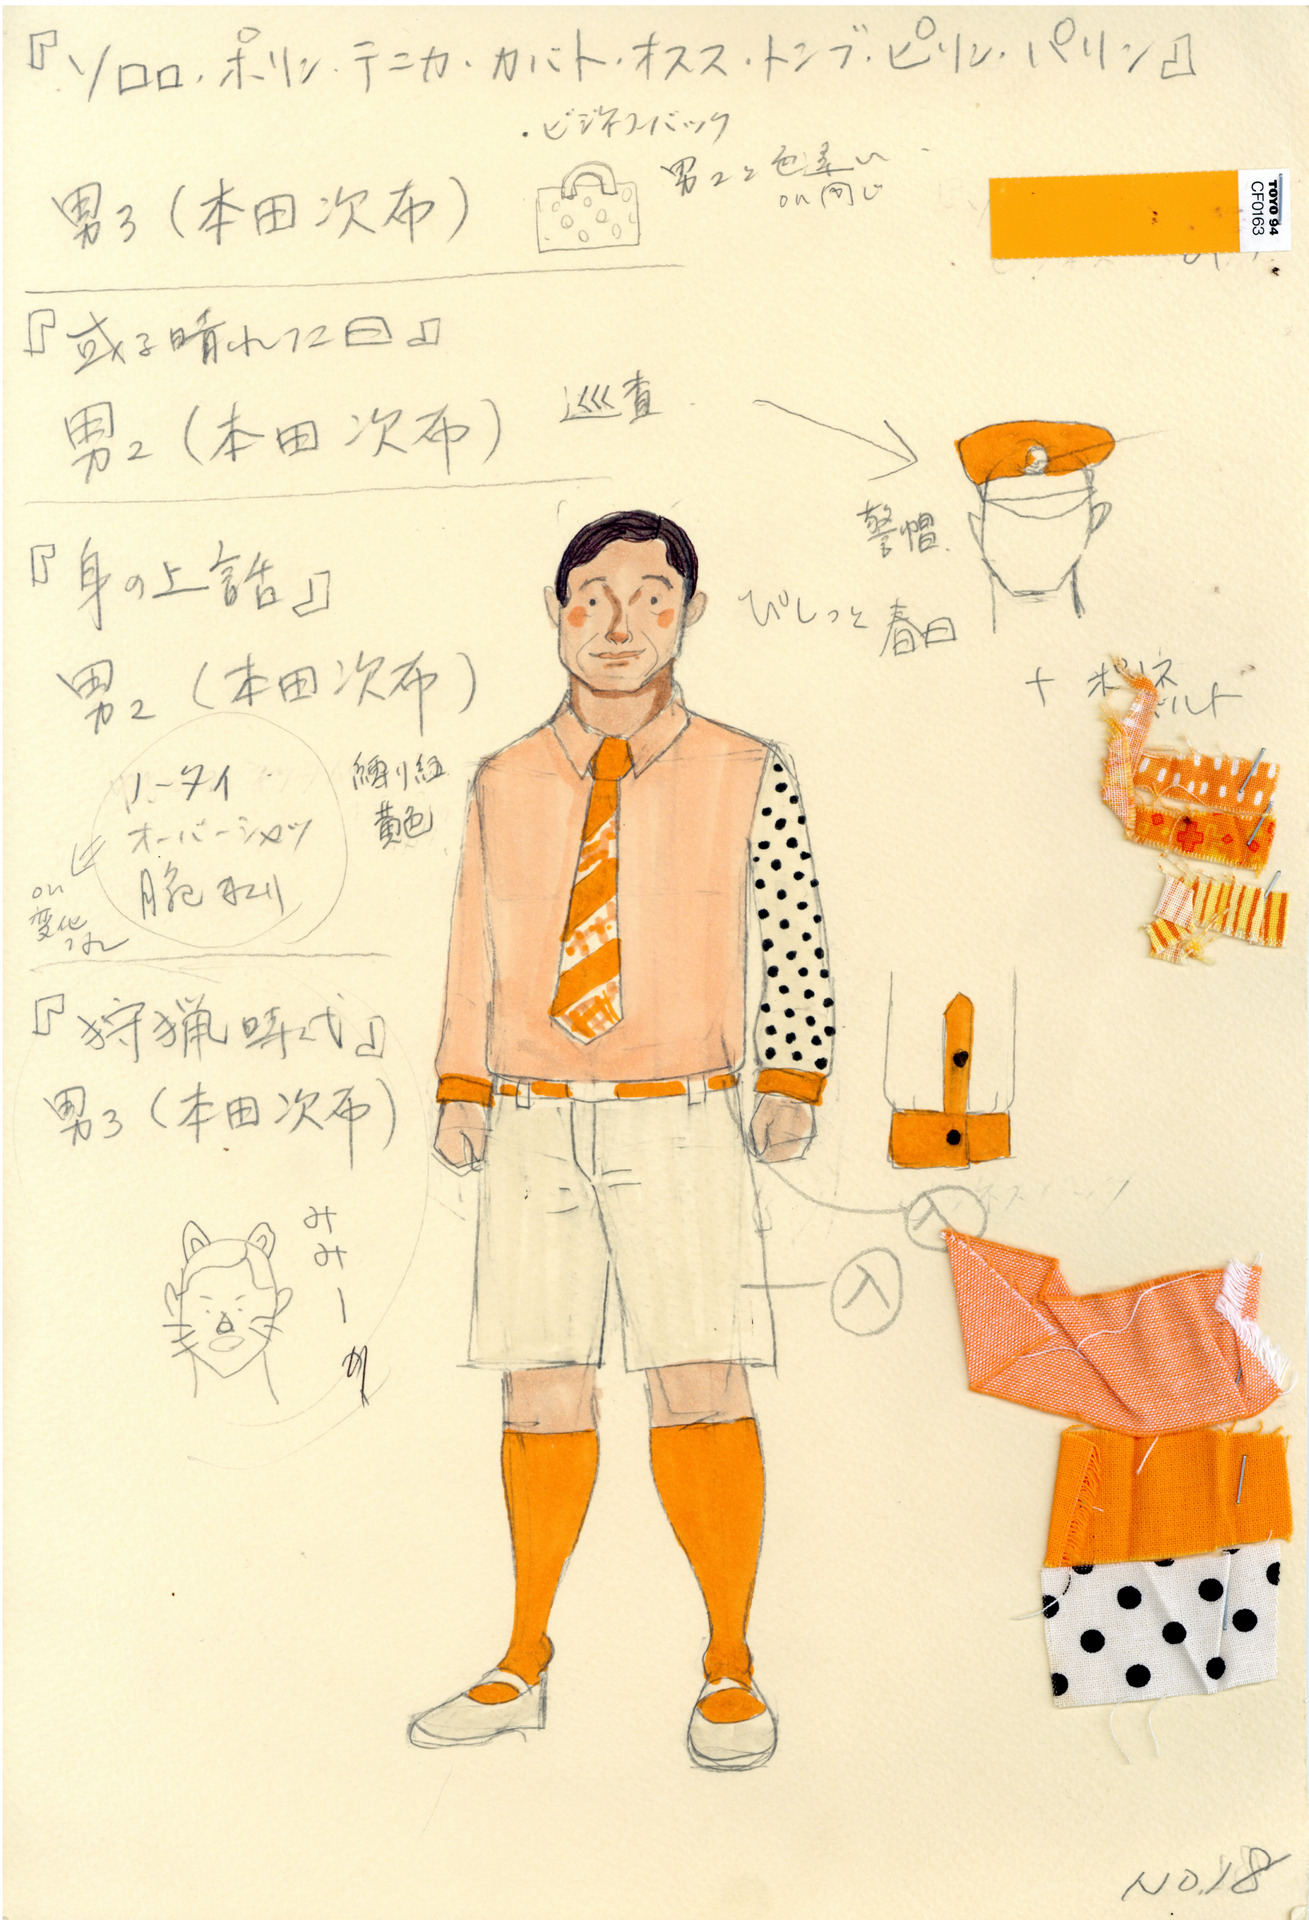 『ソロロ・ポリン・テニカ・カバト・オスス・トンブ・ピリン・パリン』
・ビジネスバック
男3(本田次布)
男2と色違い
on同じ
TOYO 94
CF0163
『或る晴れた日』
男2(本田次布)
巡査
警帽
『身の上話』
男2(本田次布)
ぴしっと
春日
+
ベルト
ノータイ
オーバーシャツ
縛り紐
黄色
on
変化
なし
『狩猟時代』
男3(本田次布)
みみー
入
入
NO.18